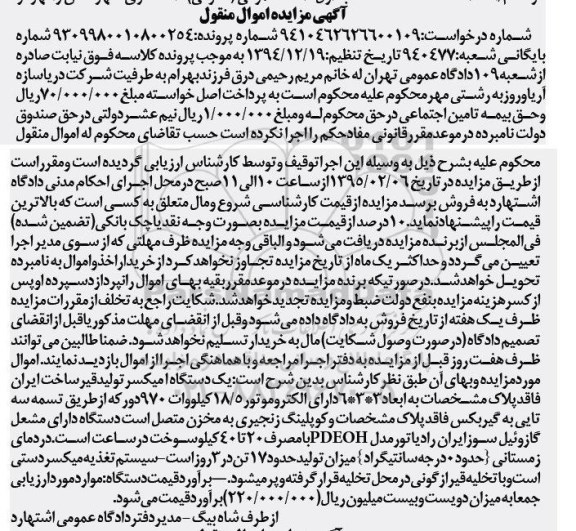 آگهی مزایده اموال منقول
شماره درخواست: ۹۴۱۰۴۶۲۶۲۶۶۰۰۱۰۹ شماره پرونده: ۹۳۰۹۹۸۰۰۱۰۸۰۰۲۵۴ شماره
بایگانی شعبه: ۹۴۰۴۷۷ تاریخ تنظیم: ۱۳۹۴/۱۲/۱۹ به موجب پرونده کلاسه فوق نیابت صادره
از شعبه ۱۰۹ دادگاه عمومی تهران له خانم مریم رحیمی درق فرزند بهرام به طرفیت شرکت دریاسازه
آریا و روزبه رشتی مهر محکوم علیه محکوم است به پرداخت اصل خواسته مبلغ ۷۰/۰۰۰/۰۰۰ ریال
وحق بیمه تامین اجتماعی در حق محکوم له و مبلغ ۱/۰۰۰/۰۰۰ ریال نیم عشر دولتی در حق صندوق
دولت نامبرده در موعد مقرر قانونی مفاد حکم را اجرا نکرده است حسب تقاضای محکوم له اموال منقول
محکوم علیه بشرح ذیل به وسیله این اجرا توقیف و توسط کارشناس ارزیابی گردیده است و مقرر است
از طریق مزایده در تاریخ ۱۳۹۵/۰۲/۰۶ از ساعت ۱۰ الی ۱۱ صبح در محل اجرای احکام مدنی دادگاه
اشتهارد به فروش برسد مزایده از قیمت کارشناسی شروع و مال متعلق به کسی است که بالاترین
قیمت را پیشنهاد نماید. ۱۰ درصد از قیمت مزایده بصورت وجه نقد یا چک بانکی (تضمین شده)
فی المجلس از برنده مزایده دریافت می شود و الباقی وجه مزایده ظرف مهلتی که از سوی مدیر اجرا
تعیین می گردد و حداکثر یک ماه از تاریخ مزایده تجاوز نخواهد کرد از خریدار اخذ و اموال به نامبرده
تحویل خواهد شد. در صورتیکه برنده مزایده در موعد مقرر بقیه بهای اموال را نپردازد سپرده او پس
از کسر هزینه مزایده بنفع دولت ضبط و مزایده تجدید خواهد شد. شکایت راجع به تخلف از مقررات مزایده
ظرف یک هفته از تاریخ فروش به دادگاه داده می شود و قبل از انقضای مهلت مذکور یا قبل از انقضای
تصمیم دادگاه (در صورت وصول شکایت) مال به خریدار تسلیم نخواهد شود. ضمنا طالبین می توانند
ظرف هفت روز قبل از مزایده به دفتر اجرا مراجعه و با هماهنگی اجرا از اموال بازدید نمایند. اموال
مورد مزایده و بهای آن طبق نظر کارشناس بدین شرح است: یک دستگاه امیکسر تولید قیر ساخت ایران
فاقد پلاک مشخصات به ابعاد ۳*۳*۶ دارای الکتروموتور ۱۸/۵ کیلووات ۹۷۰ دور که از طریق تسمه سه
تایی به گیربکس فاقد پلاک مشخصات و کوپلینگ زنجیری به مخزن متصل است دستگاه دارای مشعل
گازوئیل سوز ایران رادیاتور مدل PDEOH با مصرف ۲۰ تا ۴۰ کیلو سوخت در ساعت است. در دمای
زمستانی {حدود ۰ درجه سانتیگراد} میزان تولید حدود ۱۷ تن در ۳ روز است - سیستم تغذیه میکسر دستی
است و با تخلیه قیر از گونی در محل تخلیه قرار گرفته و پر میشود. — برآورد قیمت دستگاه: موارد مورد ارزیابی
جمعا به میزان دویست و بیست میلیون ریال (۲۲۰/۰۰۰/۰۰۰) برآورد قیمت می شود.
از طرف شاه بیگ - مدیر دفتر دادگاه عمومی اشتهارد